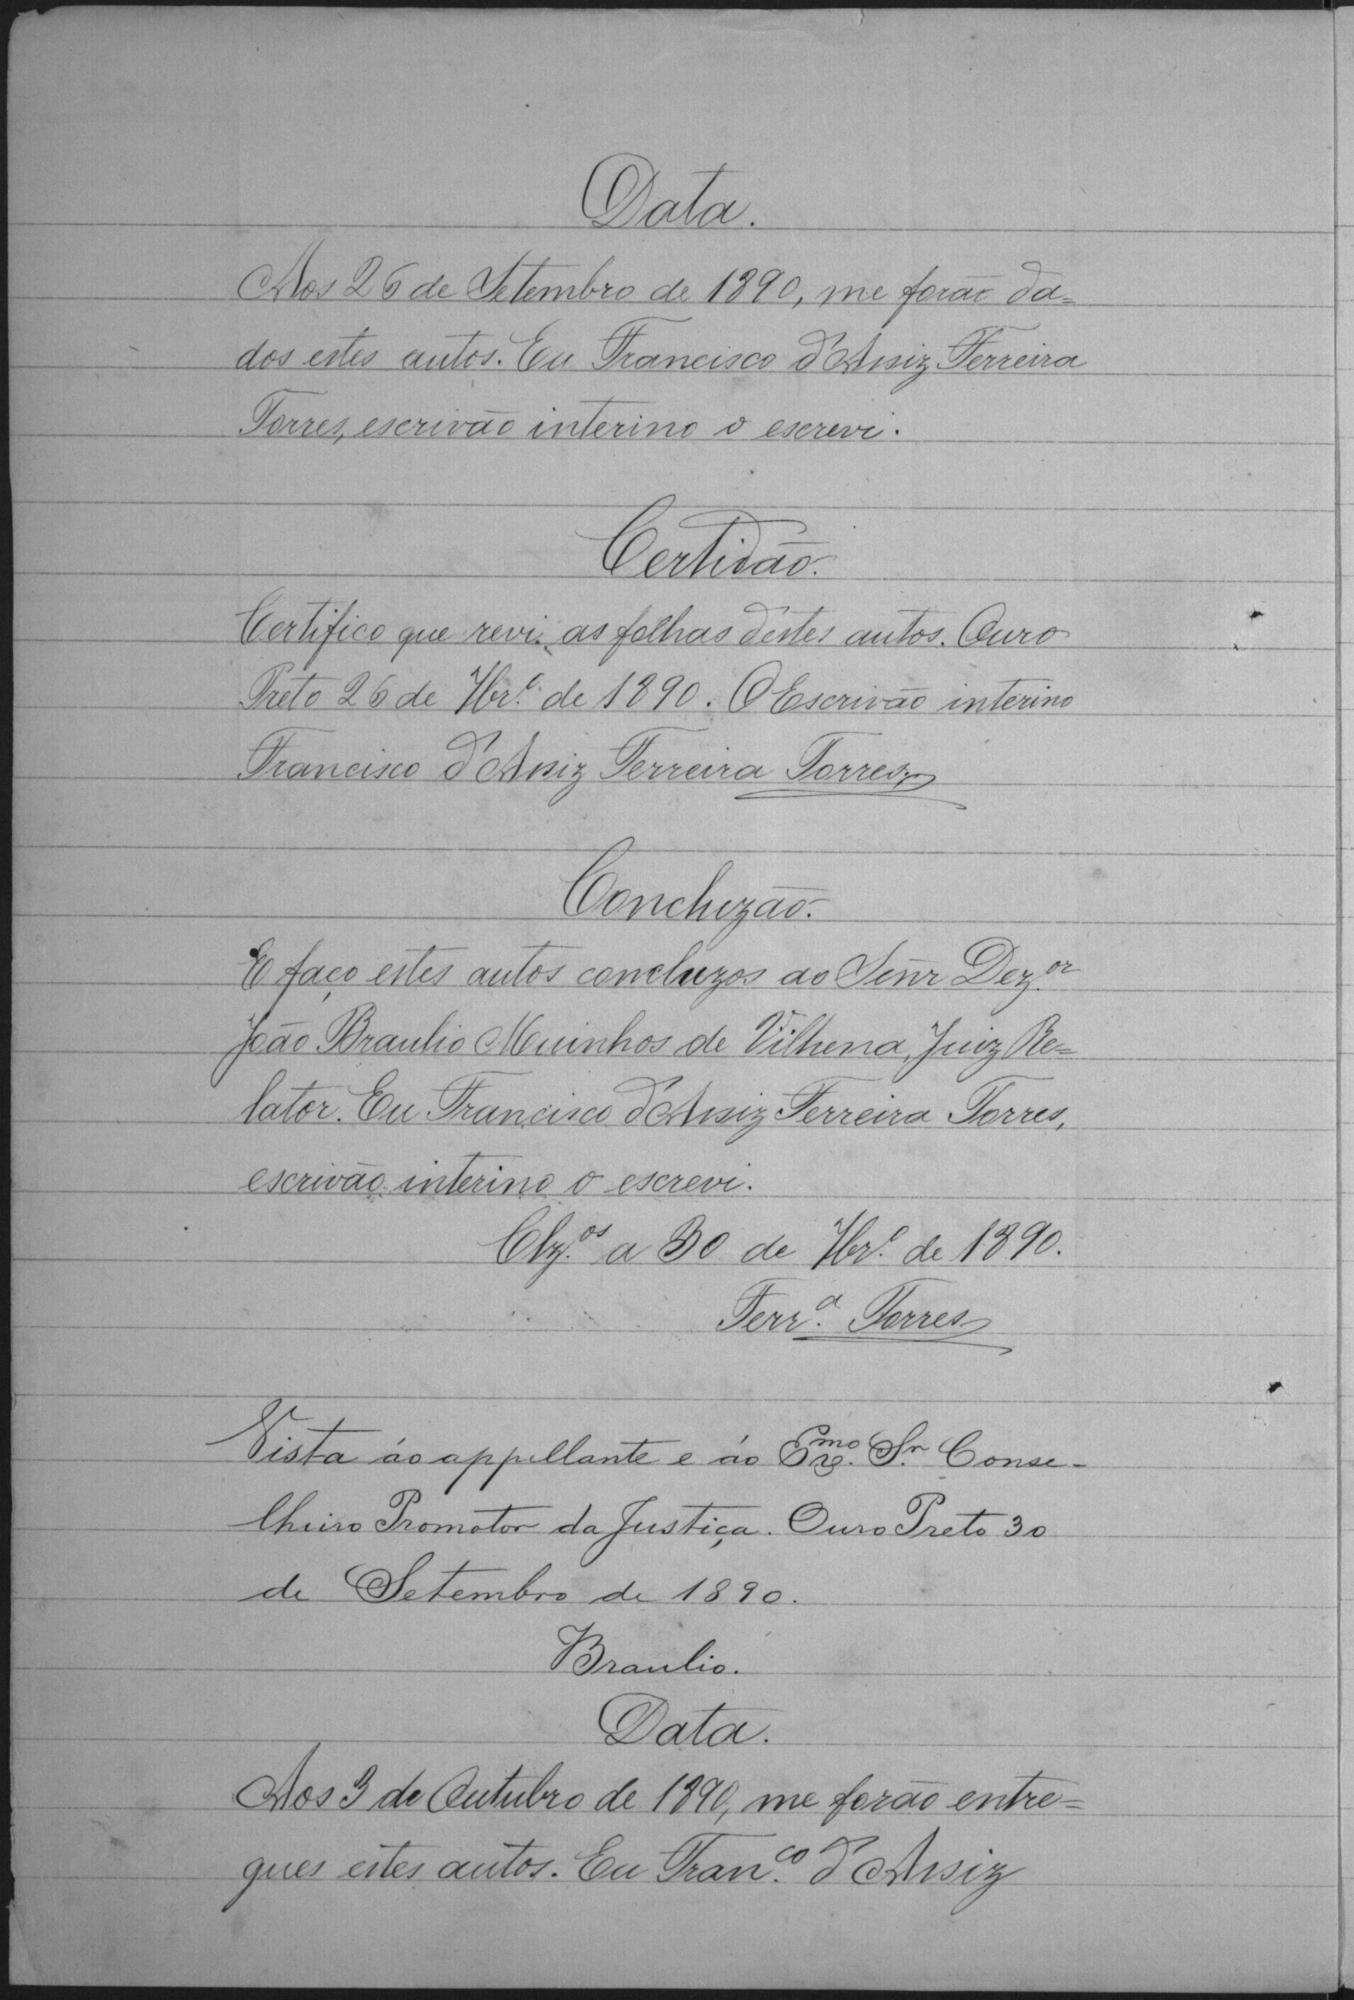 Data.
Aos 26 de Setembro de 1890, me forão da=
dos estes autos. Eu Francisco d'Assiz Ferreira
Torres, escrivão interino o escrevi.
Certidão.
Certifico que revi as folhas d'estes autos. Ouro
Preto 26 de 7br.º de 1890. O Escrivão interino
Francisco d'Assiz Ferreira Torres
Concluzão.
E faço estes autos concluzos ao Senr Dez.or
João Braulio Muinhos de Vilhena, Juiz Re=
lator. Eu Francisco d'Assiz Ferreira Torres,
escrivão interino o escrevi.
Clz.os a 30 de 7br.º de 1890.
Ferr.a Torres
Vista áo appellante e áo Exmo. Sr. Conse-
lheiro Promotor da Justiça. Ouro Preto 30
de Setembro de 1890.
Braulio.
Data.
Aos 3 de Outubro de 1890, me forão entre=
gues estes autos. Eu Fran.co d'Assiz